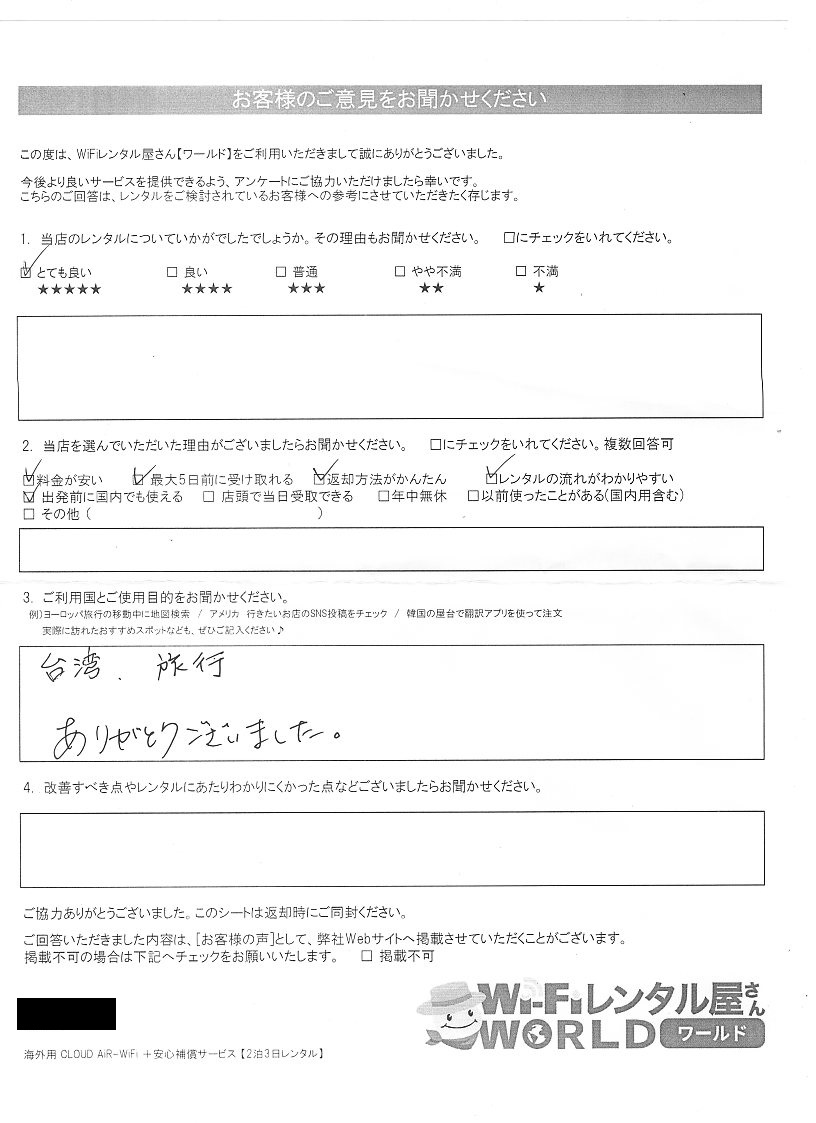 お客様のご意見をお聞かせください
この度は、WiFiレンタル屋さん【ワールド】をご利用いただきまして誠にありがとうございました。
今後より良いサービスを提供できるよう、アンケートにご協力いただけましたら幸いです。
こちらのご回答は、レンタルをご検討されているお客様への参考にさせていただきたく存じます。
1. 当店のレンタルについていかがでしたでしょうか。その理由もお聞かせください。 □にチェックをいれてください。
☑ とても良い □ 良い □ 普通 □ やや不満 □ 不満
★★★★★ ★★★★ ★★★ ★★ ★
2. 当店を選んでいただいた理由がございましたらお聞かせください。 □にチェックをいれてください。複数回答可
☑料金が安い ☑最大5日前に受け取れる ☑返却方法がかんたん ☑レンタルの流れがわかりやすい
☑ 出発前に国内でも使える □ 店頭で当日受取できる □年中無休 □以前使ったことがある(国内用含む)
□ その他 ( )
3. ご利用国とご使用目的をお聞かせください。
例)ヨーロッパ旅行の移動中に地図検索 / アメリカ 行きたいお店のSNS投稿をチェック / 韓国の屋台で翻訳アプリを使って注文
実際に訪れたおすすめスポットなども、ぜひご記入ください♪
台湾、旅行
ありがとうございました。
4. 改善すべき点やレンタルにあたりわかりにくかった点などございましたらお聞かせください。
ご協力ありがとうございました。このシートは返却時にご同封ください。
ご回答いただきました内容は、[お客様の声]として、弊社Webサイトへ掲載させていただくことがございます。
掲載不可の場合は下記へチェックをお願いいたします。 □ 掲載不可
Wi-Fiレンタル屋さん
WORLD ワールド
海外用 CLOUD AiR-WiFi +安心補償サービス【2泊3日レンタル】